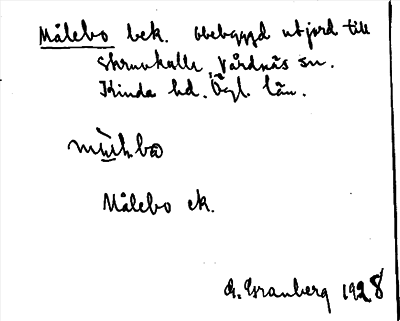 Målebo bek. obebyggd utjord till
Skruvkulla, Vårdnäs sn.
Kinda hd. Ögl. län.
Målebo ek.
G. Granberg 1928